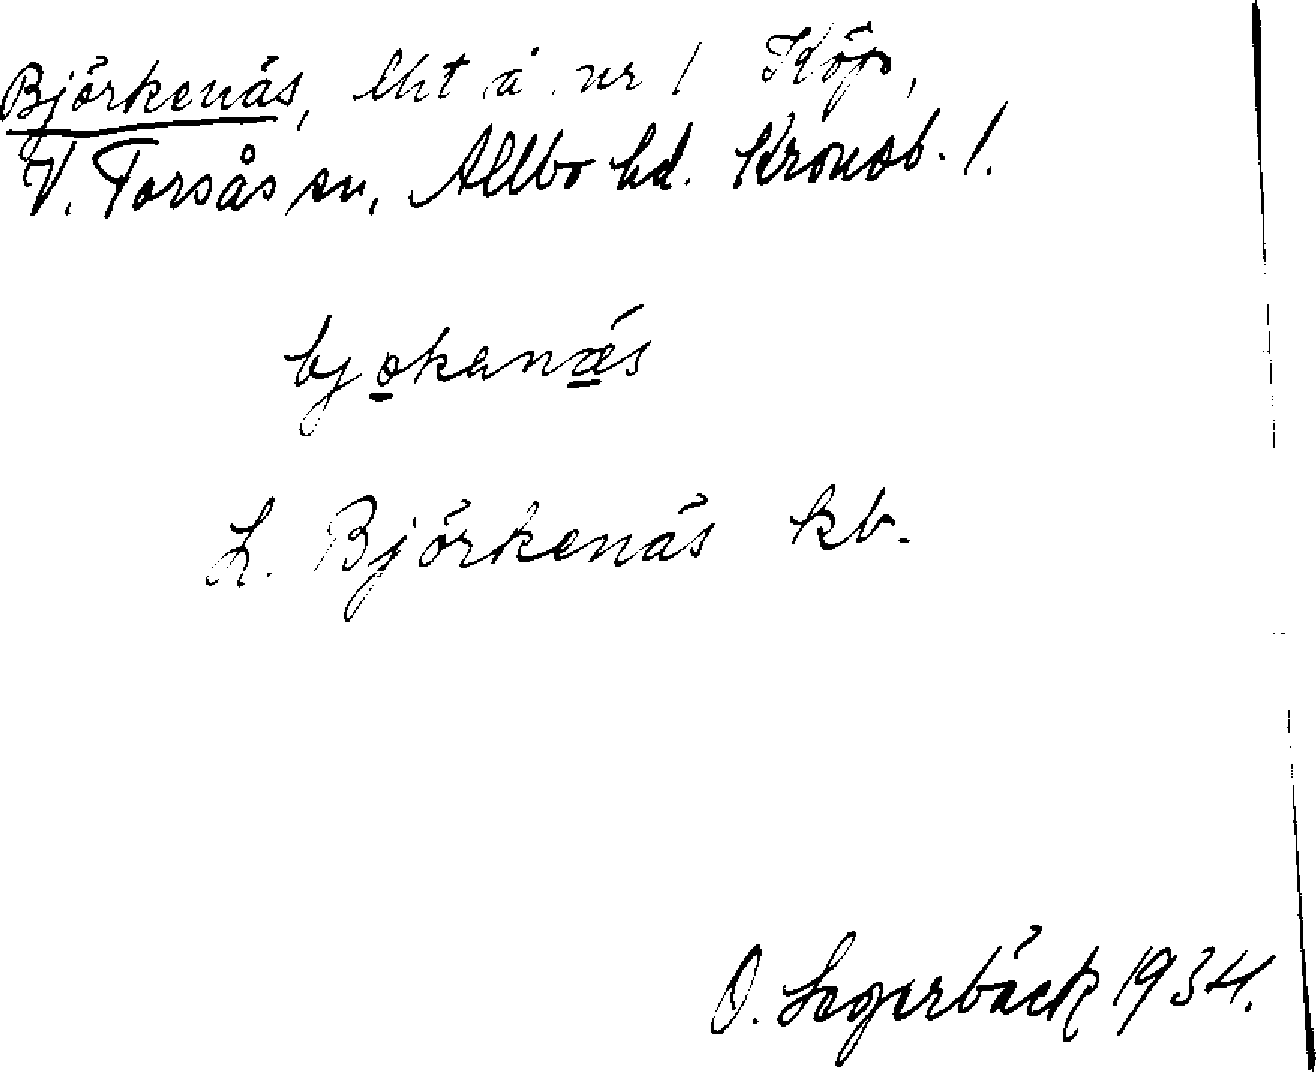 Björkenäs, lht å nr 1 Köp,
V. Torsås sn, Allbo hd. Kronob. l.
bjokanæs
L. Björkenäs kb.
O. Segerbäck 1934.